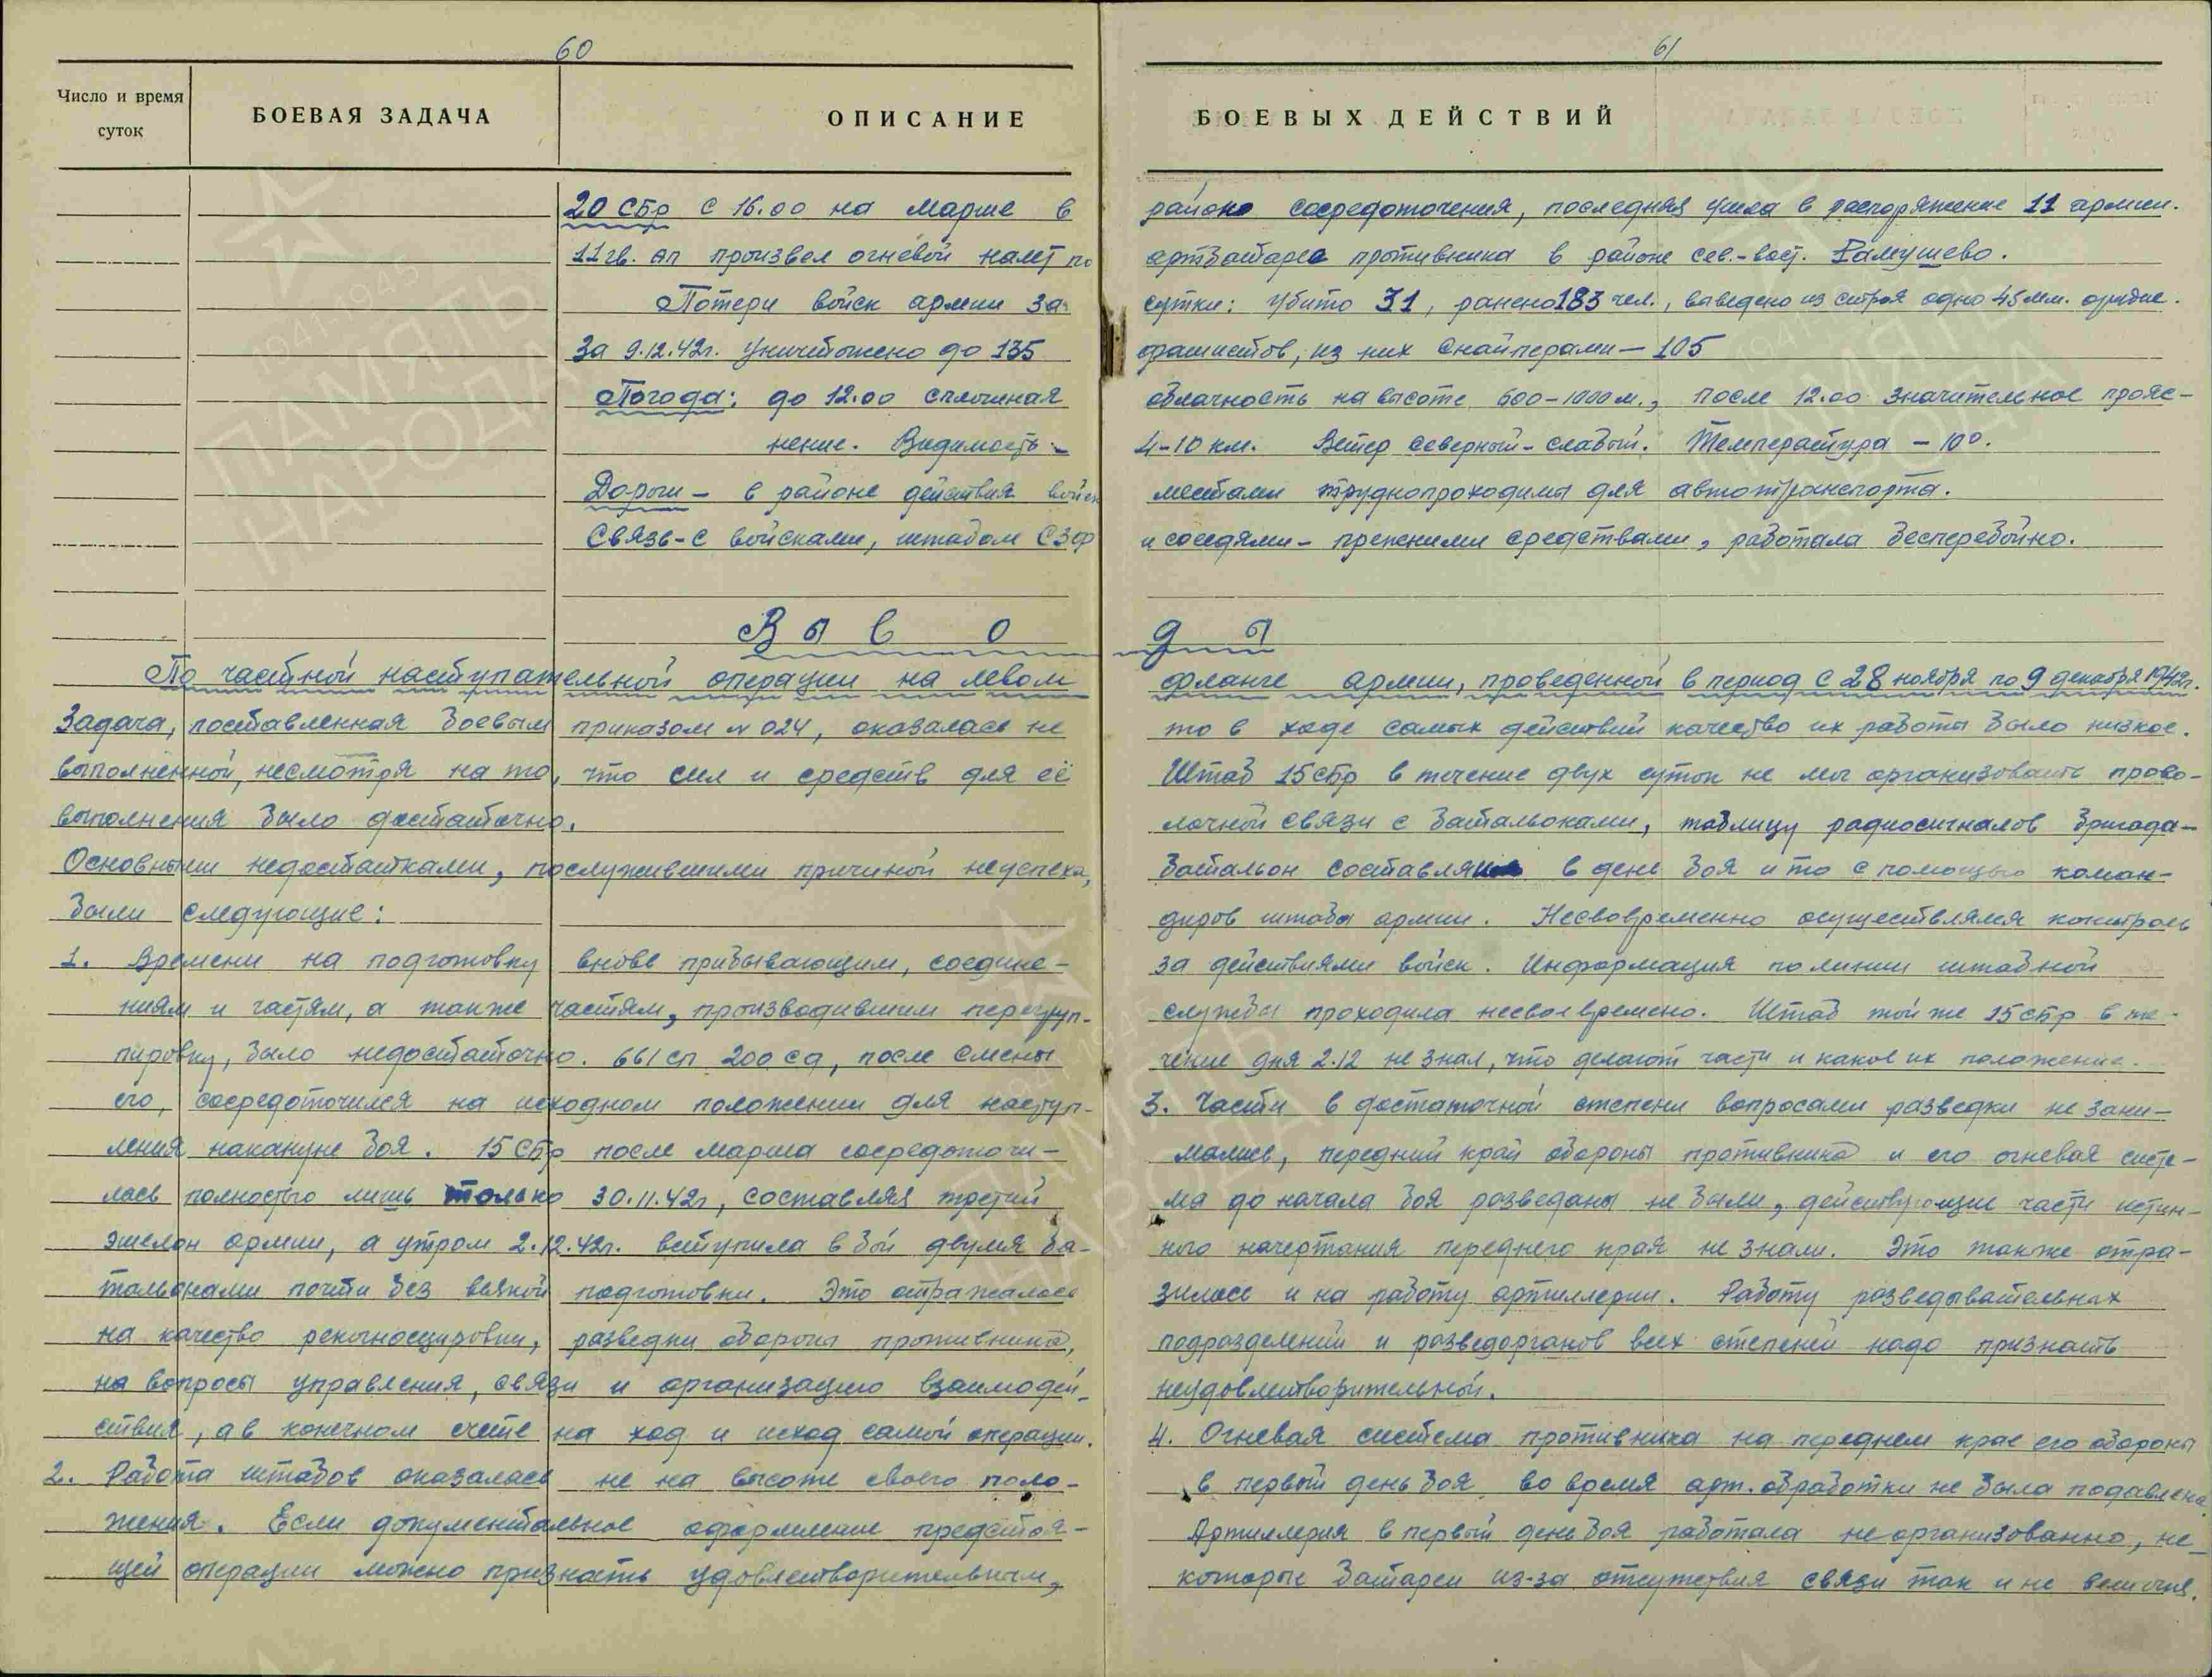 60
61
Число и время суток
БОЕВАЯ ЗАДАЧА
ОПИСАНИЕ БОЕВЫХ ДЕЙСТВИЙ
20 сбр с 16.00 на марше в района сосредоточения, последняя ушла в распоряжение 11 армии.
11 гв. ап произвел огневой налет по артбатарея противника в районе сев.-вост. Рамушево.
Потери войск армии за сутки: убито 31, ранено 183 чел., выведено из строя одно 45 мм. орудие.
За 9.12.42г. уничтожено до 135 фашистов, из них снайперами – 105
Погода: до 12.00 сплошная облачность на высоте 600-1000 м., после 12.00 значительное прояс-
нение. Видимость – 4-10 км. Ветер северный – слабый. Температура – 10°.
Дороги – в районе действия войск местами труднопроходимы для автотранспорта.
Связь – с войсками, штабом СЗФ и соседями – прежними средствами, работала бесперебойно.
Выводы
По частной наступательной операции на левом фланге армии, проведенной в период с 28 ноября по 9 декабря 1942г.
Задача, поставленная боевым приказом № 024, оказалась не
выполненной, несмотря на то, что сил и средств для её
выполнения было достаточно.
Основными недостатками, послужившими причиной неуспеха,
были следующие:
1. Времени на подготовку вновь прибывающим, соедине-
ниям и частям, а также частям, производившим перегруп-
пировку, было недостаточно. 661 сп 200 сд, после смены
его, сосредоточился на исходном положении для наступ-
ления накануне боя. 15 сбр после марша сосредоточи-
лась полностью лишь только 30.11.42г, составляя третий
эшелон армии, а утром 2.12.42г. вступила в бой двумя ба-
тальонами почти без всякой подготовки. Это отражалось
на качество рекогносцировки, разведки обороны противника,
на вопросы управления, связи и организацию взаимодей-
ствия, а в конечном счете на ход и исход самой операции.
2. Работа штабов оказалась не на высоте своего поло-
жения. Если документальное оформление предстоя-
щей операции можно признать удовлетворительным,
то в ходе самых действий качество их работы было низкое.
Штаб 15 сбр в течение двух суток не мог организовать прово-
лочной связи с батальонами, таблицу радиосигналов бригада-
батальон составляли в день боя и то с помощью коман-
диров штаба армии. Несвовременно осуществлялся контроль
за действиями войск. Информация по линии штабной
службы проходила несвоевремено. Штаб той же 15 сбр в те-
чение дня 2.12 не знал, что делают части и какое их положение.
3. Части в достаточной степени вопросами разведки не зани-
мались, передний край обороны противника и его огневая систе-
ма до начала боя разведаны не были, действующие части истин-
ного начертания переднего края не знали. Это также отра-
зилось и на работу артиллерии. Работу разведывательных
подразделений и разведорганов всех степеней надо признать
неудовлетворительной.
4. Огневая система противника на переднем крае его обороны
в первый день боя во время арт. обработки не была подавлена.
Артиллерия в первый день боя работала не организованно, не-
которые батареи из-за отсутствия связи так и не